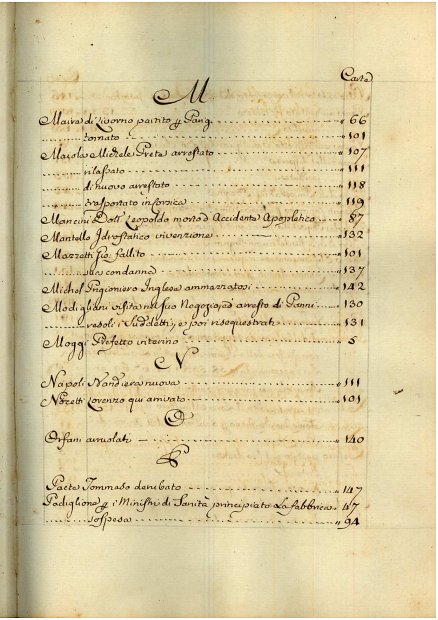 Carte
M
Maire di Livorno partito p Parig. 66
tornato 101
Maiola Michele Prete arrestato 107
rilassato 111
di nuovo arrestato 118
trasportato in Corsica 119
Mancini Dott. Leopoldo morto d'Accidente Apopletico 87
Mantello Idrostatico invenzione 132
Mazzetti Gio. fallito 101
sua condanna 137
Michel Prigioniero Inglese ammazzatosi 142
Modigliani visita nel suo Negozio, ed arresto di Panni 130
resoli i suddetti, e poi risequestrati 131
Moggi Prefetto interino 5
N
Napoli Bandiera nuova 111
Lorenzo qui arrivato 101
O
Orfani arruolati 140
P
Paete Tommaso derubato 147
Padiglione p i Ministri di Sanità principiato La fabbrica 47
sospesa 94